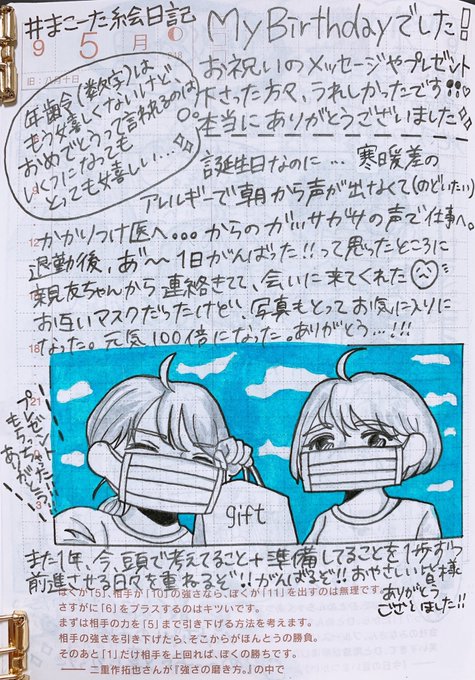 #まこーた絵日記
9 5 月
旧:八月十日
My Birthdayでした!!
お祝いのメッセージやプレゼント
下さった方々、うれしかったです!!♡
本当にありがとうございました
年齢(数字)は
もう嬉しくないけど、
おめでとうって言われるのは
いくつになっても
とっても嬉しい…
誕生日なのに… 寒暖差の
アレルギーで朝から声が出なくて(のどいたい)
かかりつけ医へ…からのガッサガサの声で仕事へ。
退勤後、あ゛〜1日がんばった!!って思ったところに
親友ちゃんから連絡きてて、会いに来てくれた
お互いマスクだったけど、写真もとってお気に入りに
なった。元気100倍になった。ありがとう…!!!
12
18
21
プレゼント
もらっちゃった
ありがとう!!
gift
また1年、今、頭で考えてること+準備してることを1歩ずつ
前進させる日々を重ねるぞ!!がんばるぞ!!おやさしい皆様
ありがとう
ございました!!
ぼくが[5]、相手が[10]の強さなら、ぼくが[11]を出すのは無理です。
さすがに[6]をプラスするのはキツいです。
まずは相手の力を[5]まで引き下げる方法を考えます。
相手の強さを引き下げたら、そこからがほんとうの勝負。
そのあと[1]だけ相手を上回れば、ぼくの勝ちです。
—— 二重作拓也さんが『強さの磨き方。』の中で